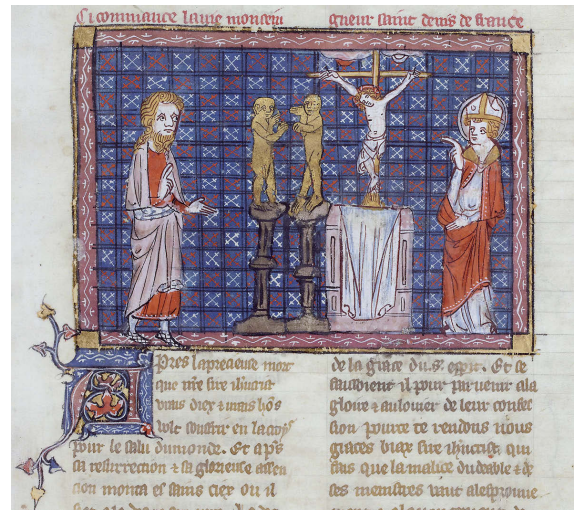 Ci commance la vie monseui
gneur saint denis de france
Apres la precieuse mort
que nre sire ihucrist
vrais diex & vrais hōs
volt souffrir en la croiz
pour le salu du monde. Et aps
sa resurrection & sa glorieuse assen
cion monta es sains ciex ou il
de la grace du .s. esperit. Et se
pour paruenir ala
gloire & aulouier de leur confes
sion pource te rendons nous
graces biax sire ihucrist qui
fais que la malice du deable & de
ses membres vaut alesprouue